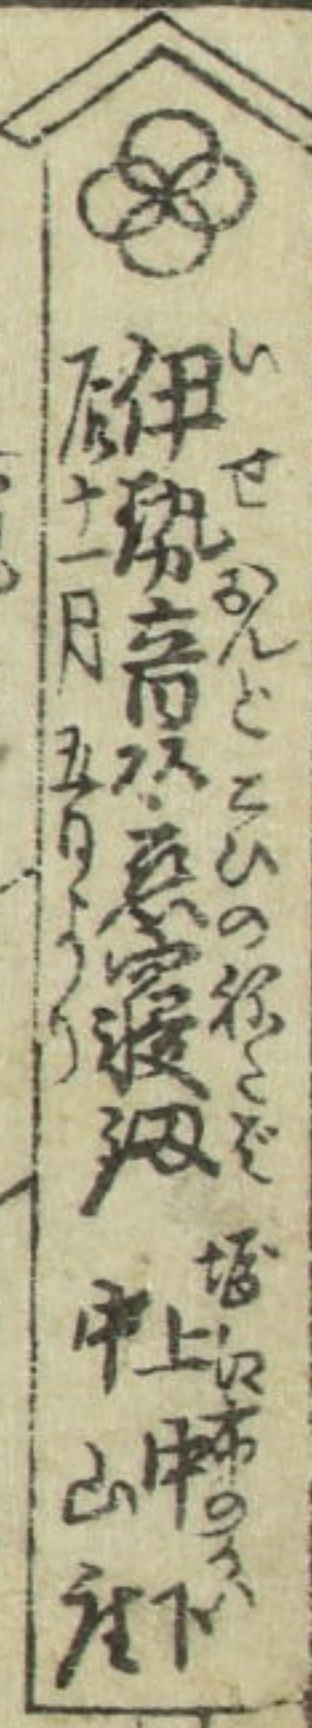 いせおんどこひのねたば
伊勢音頭恋寝釼
辰十一月五日より
堀江市のかは
上中下
中山座